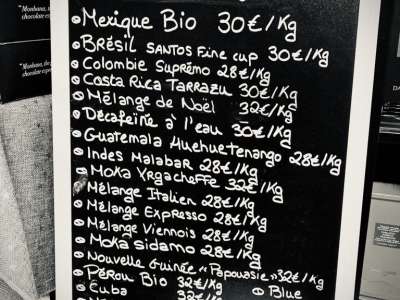 Mexique Bio 30€/Kg
BRÉSIL SANTOS Fine cup 30€/Kg
Colombie Suprémo 28€/Kg
Costa Rica TARRAZU 30€/Kg
Mélange de Noël 32€/Kg
Décafeïné à l'eau 30€/Kg
Guatemala Huehuetenango 28€/Kg
Indes Malabar 28€/Kg
Moka Yrgacheffe 32€/Kg
Mélange Italien 28€/Kg
Mélange Expresso 28€/Kg
Mélange Viennois 28€/Kg
Moka sidamo 28€/Kg
Nouvelle Guinée «Papouasie» 32€/Kg
Pérou Bio 32€/Kg
Blue
Cuba 32€/Kg